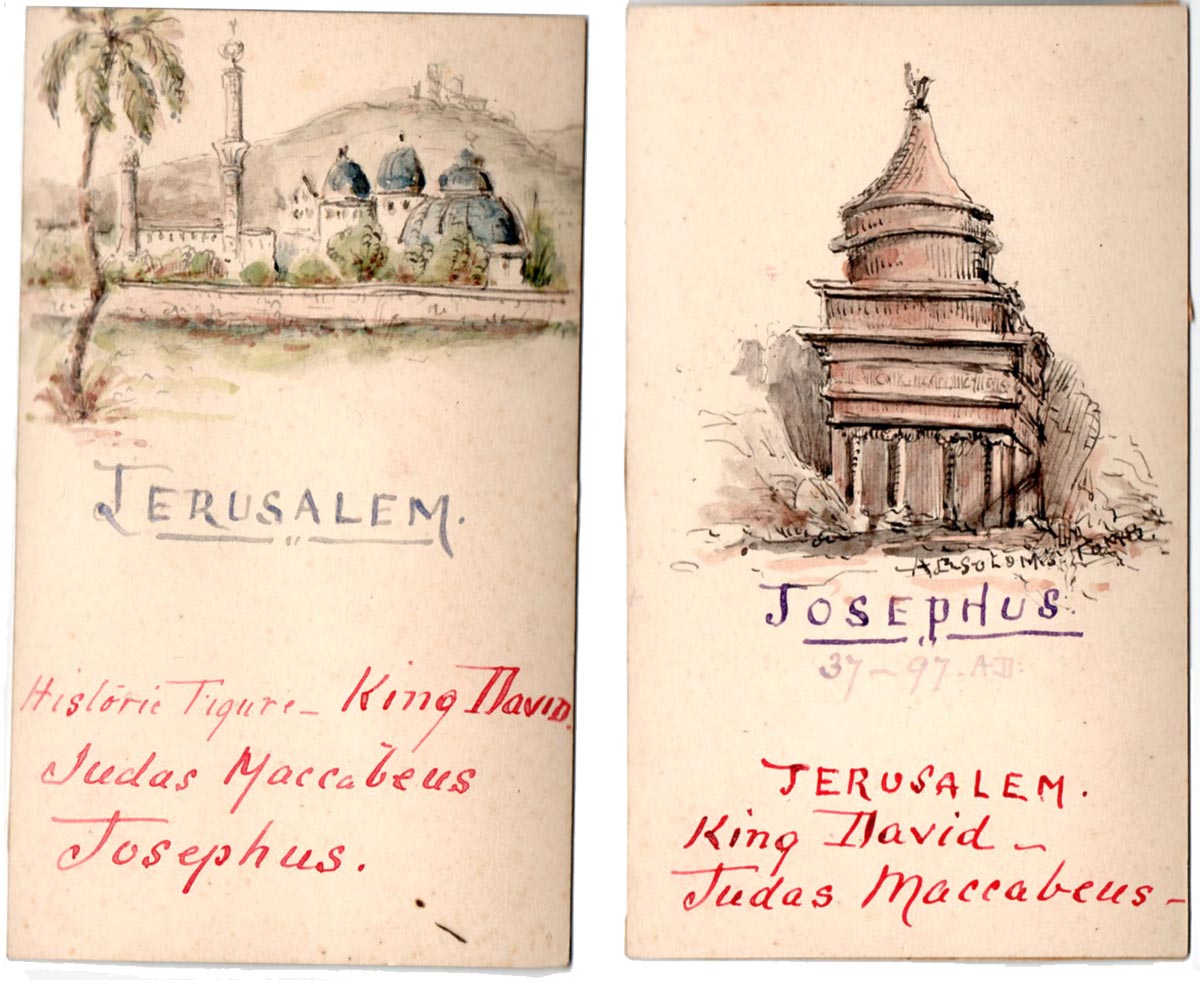 JERUSALEM.
Historic Figure - King David.
Judas Maccabeus
Josephus.
ABSOLOM'S TOMB.
JOSEPHUS.
37 - 97. A.D.
JERUSALEM.
King David -
Judas Maccabeus -